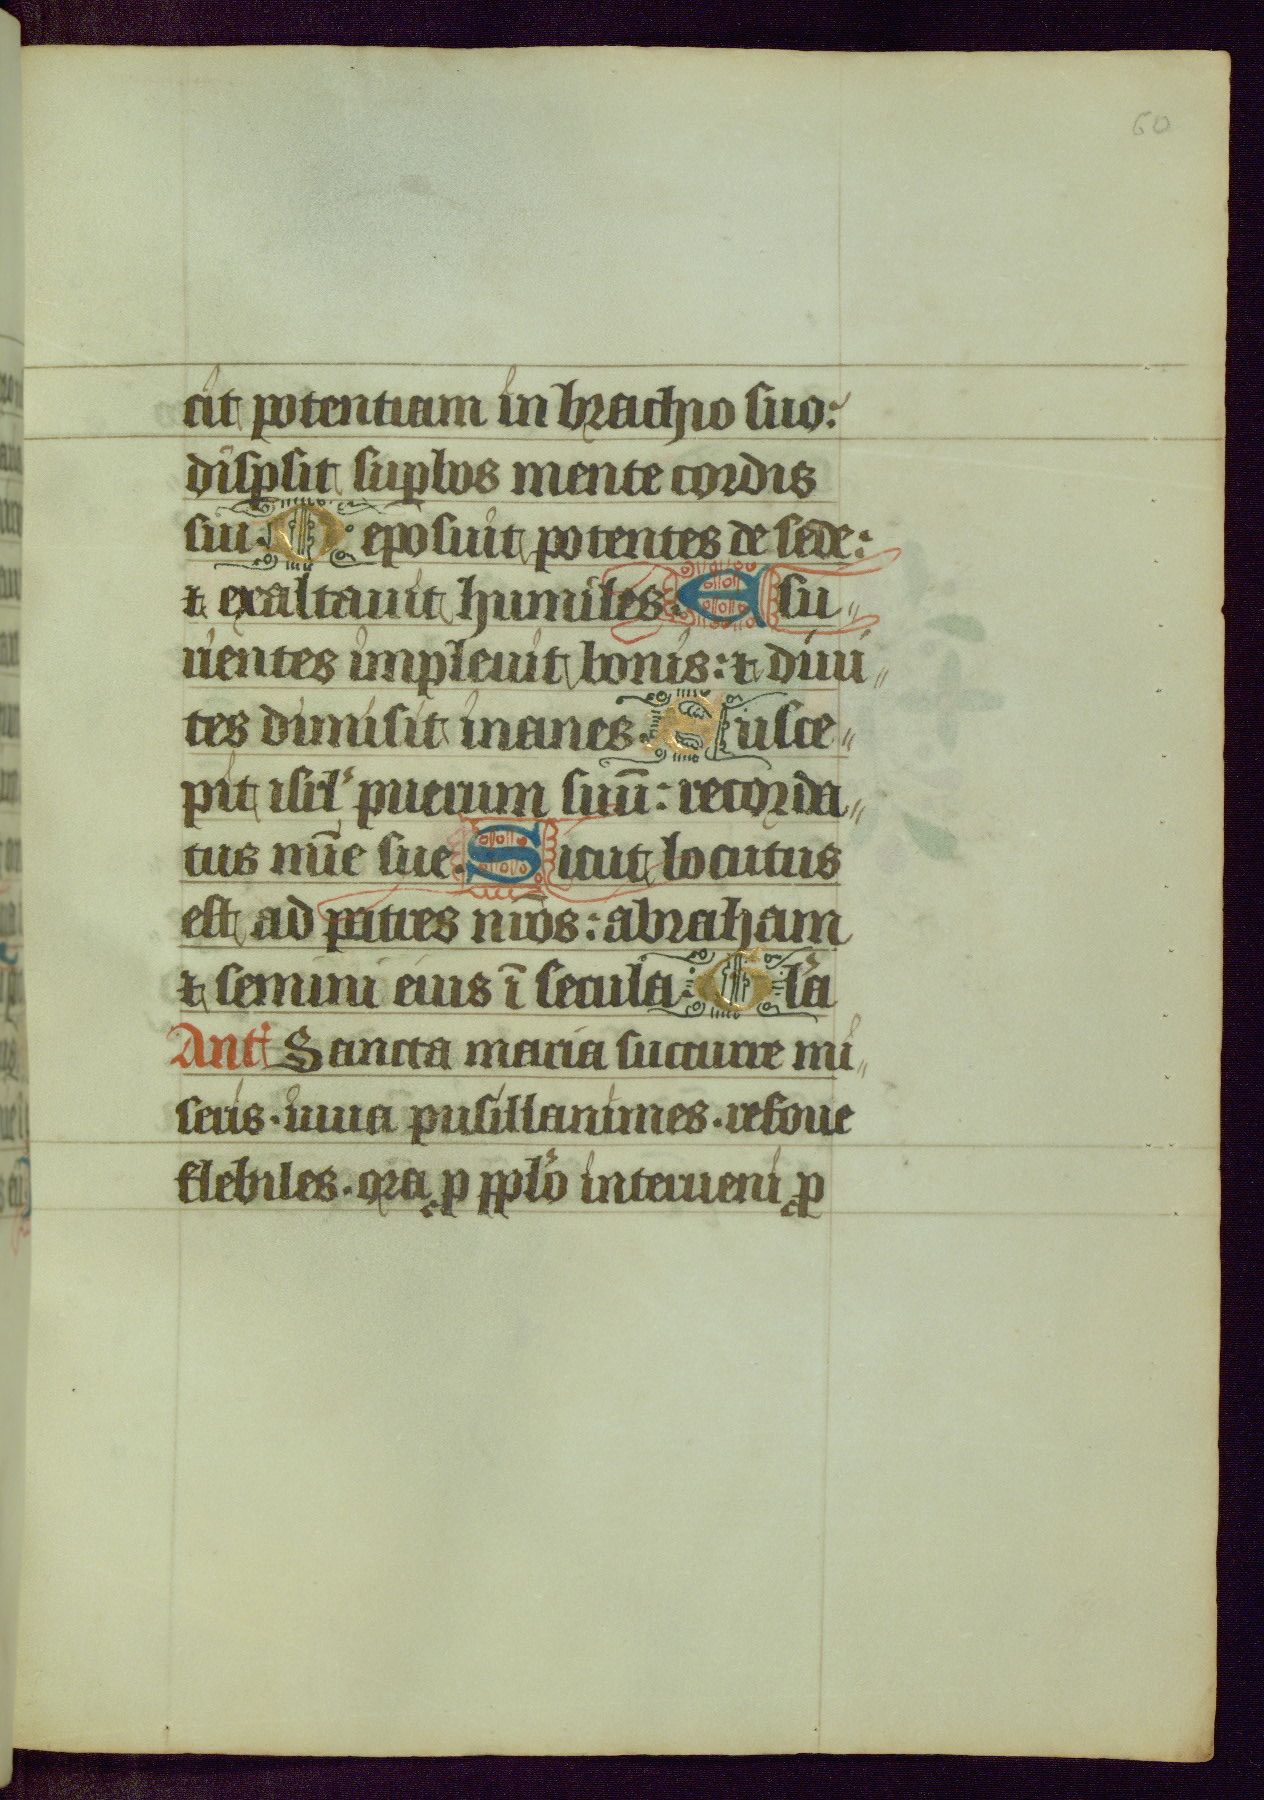 60
cit potentiam in brachio suo:
disp̱sit sup̱bos mente cordis
sui. Deposuit potentes de sede:
⁊ exaltauit humiles. Esu〃
rientes impleuit bonis: ⁊ diui〃
tes dimisit inanes. Susce〃
pit isrl̓ puerum suū: recorda〃
tus mīe sue. Sicut locutus
est ad patres nr̄os: abraham
⁊ semini eius ī secula. Gl̓a
Ant̓ Sancta maria succurre mi〃
seris. iuua pusillanimes. refoue
flebiles. ora ꝓ pp̱l̓o interueni ꝓ